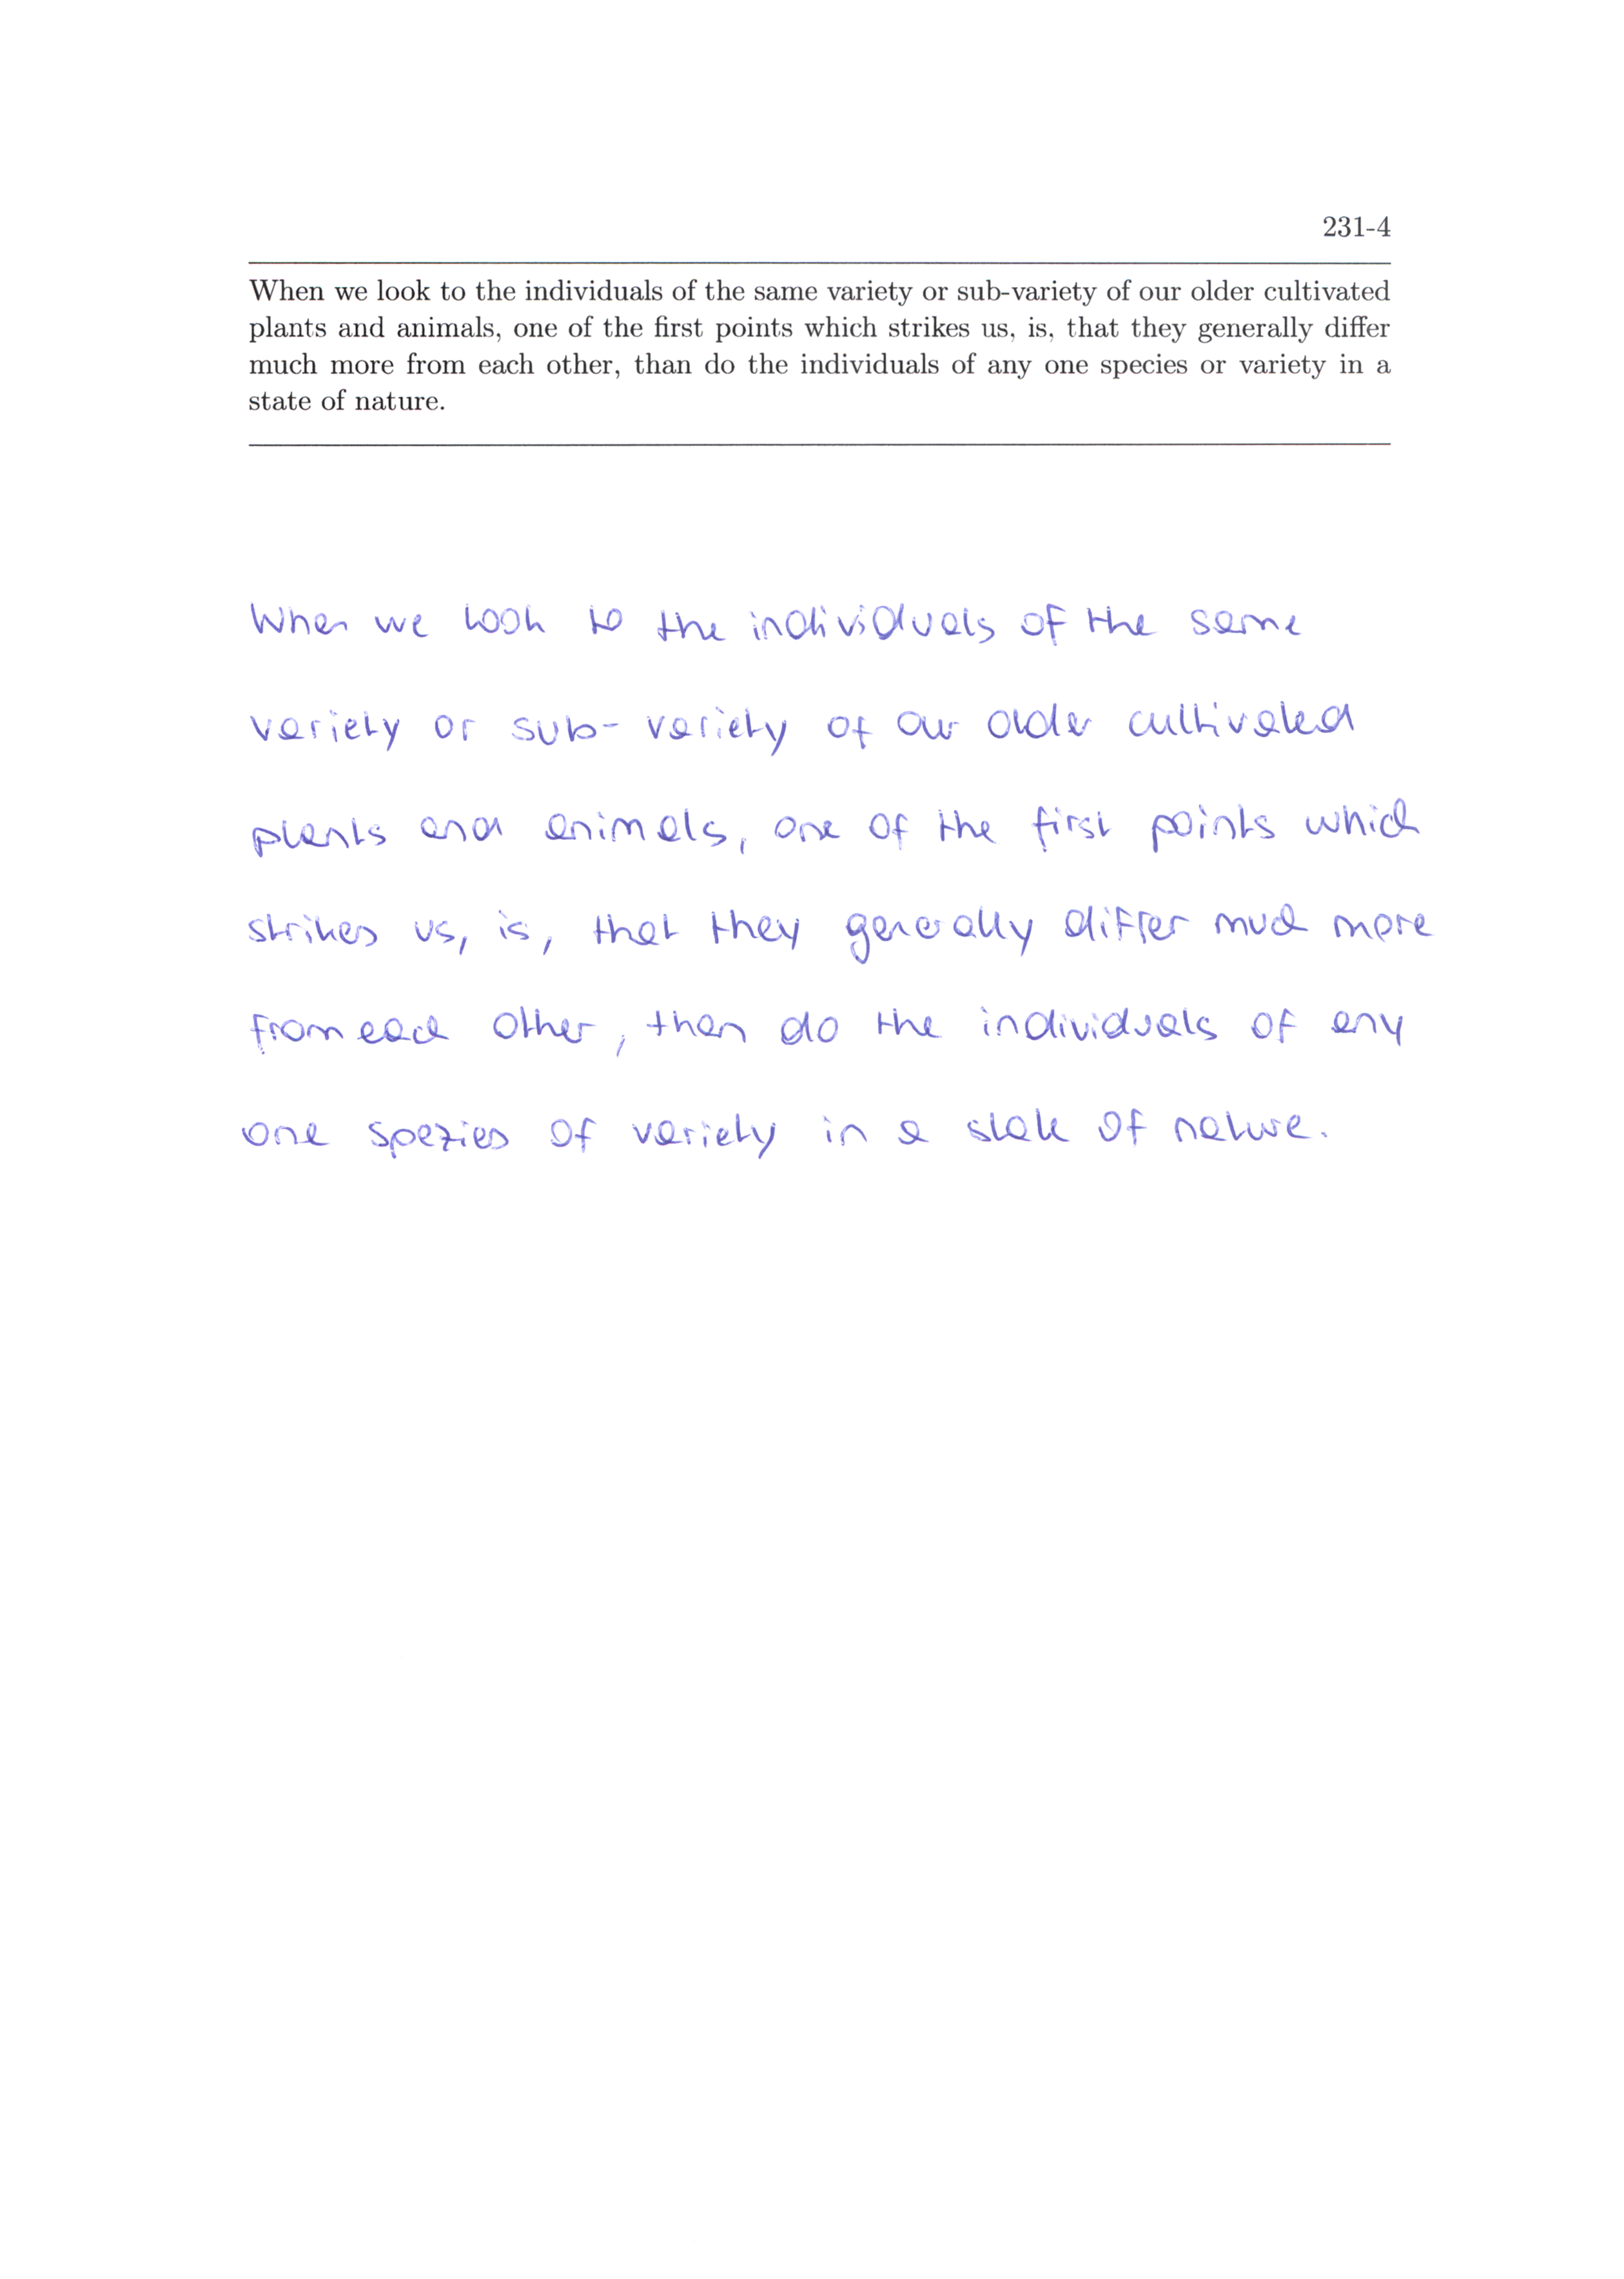 231-4
When we look to the individuals of the same variety or sub-variety of our older cultivated
plants and animals, one of the first points which strikes us, is, that they generally differ
much more from each other, than do the individuals of any one species or variety in a
state of nature.
When we look to the individuals of the same
variety or sub-variety of our older cultivated
plants and animals, one of the first points which
strikes us, is, that they generally differ much more
from each other, than do the individuals of any
one spezies of variety in a state of nature.